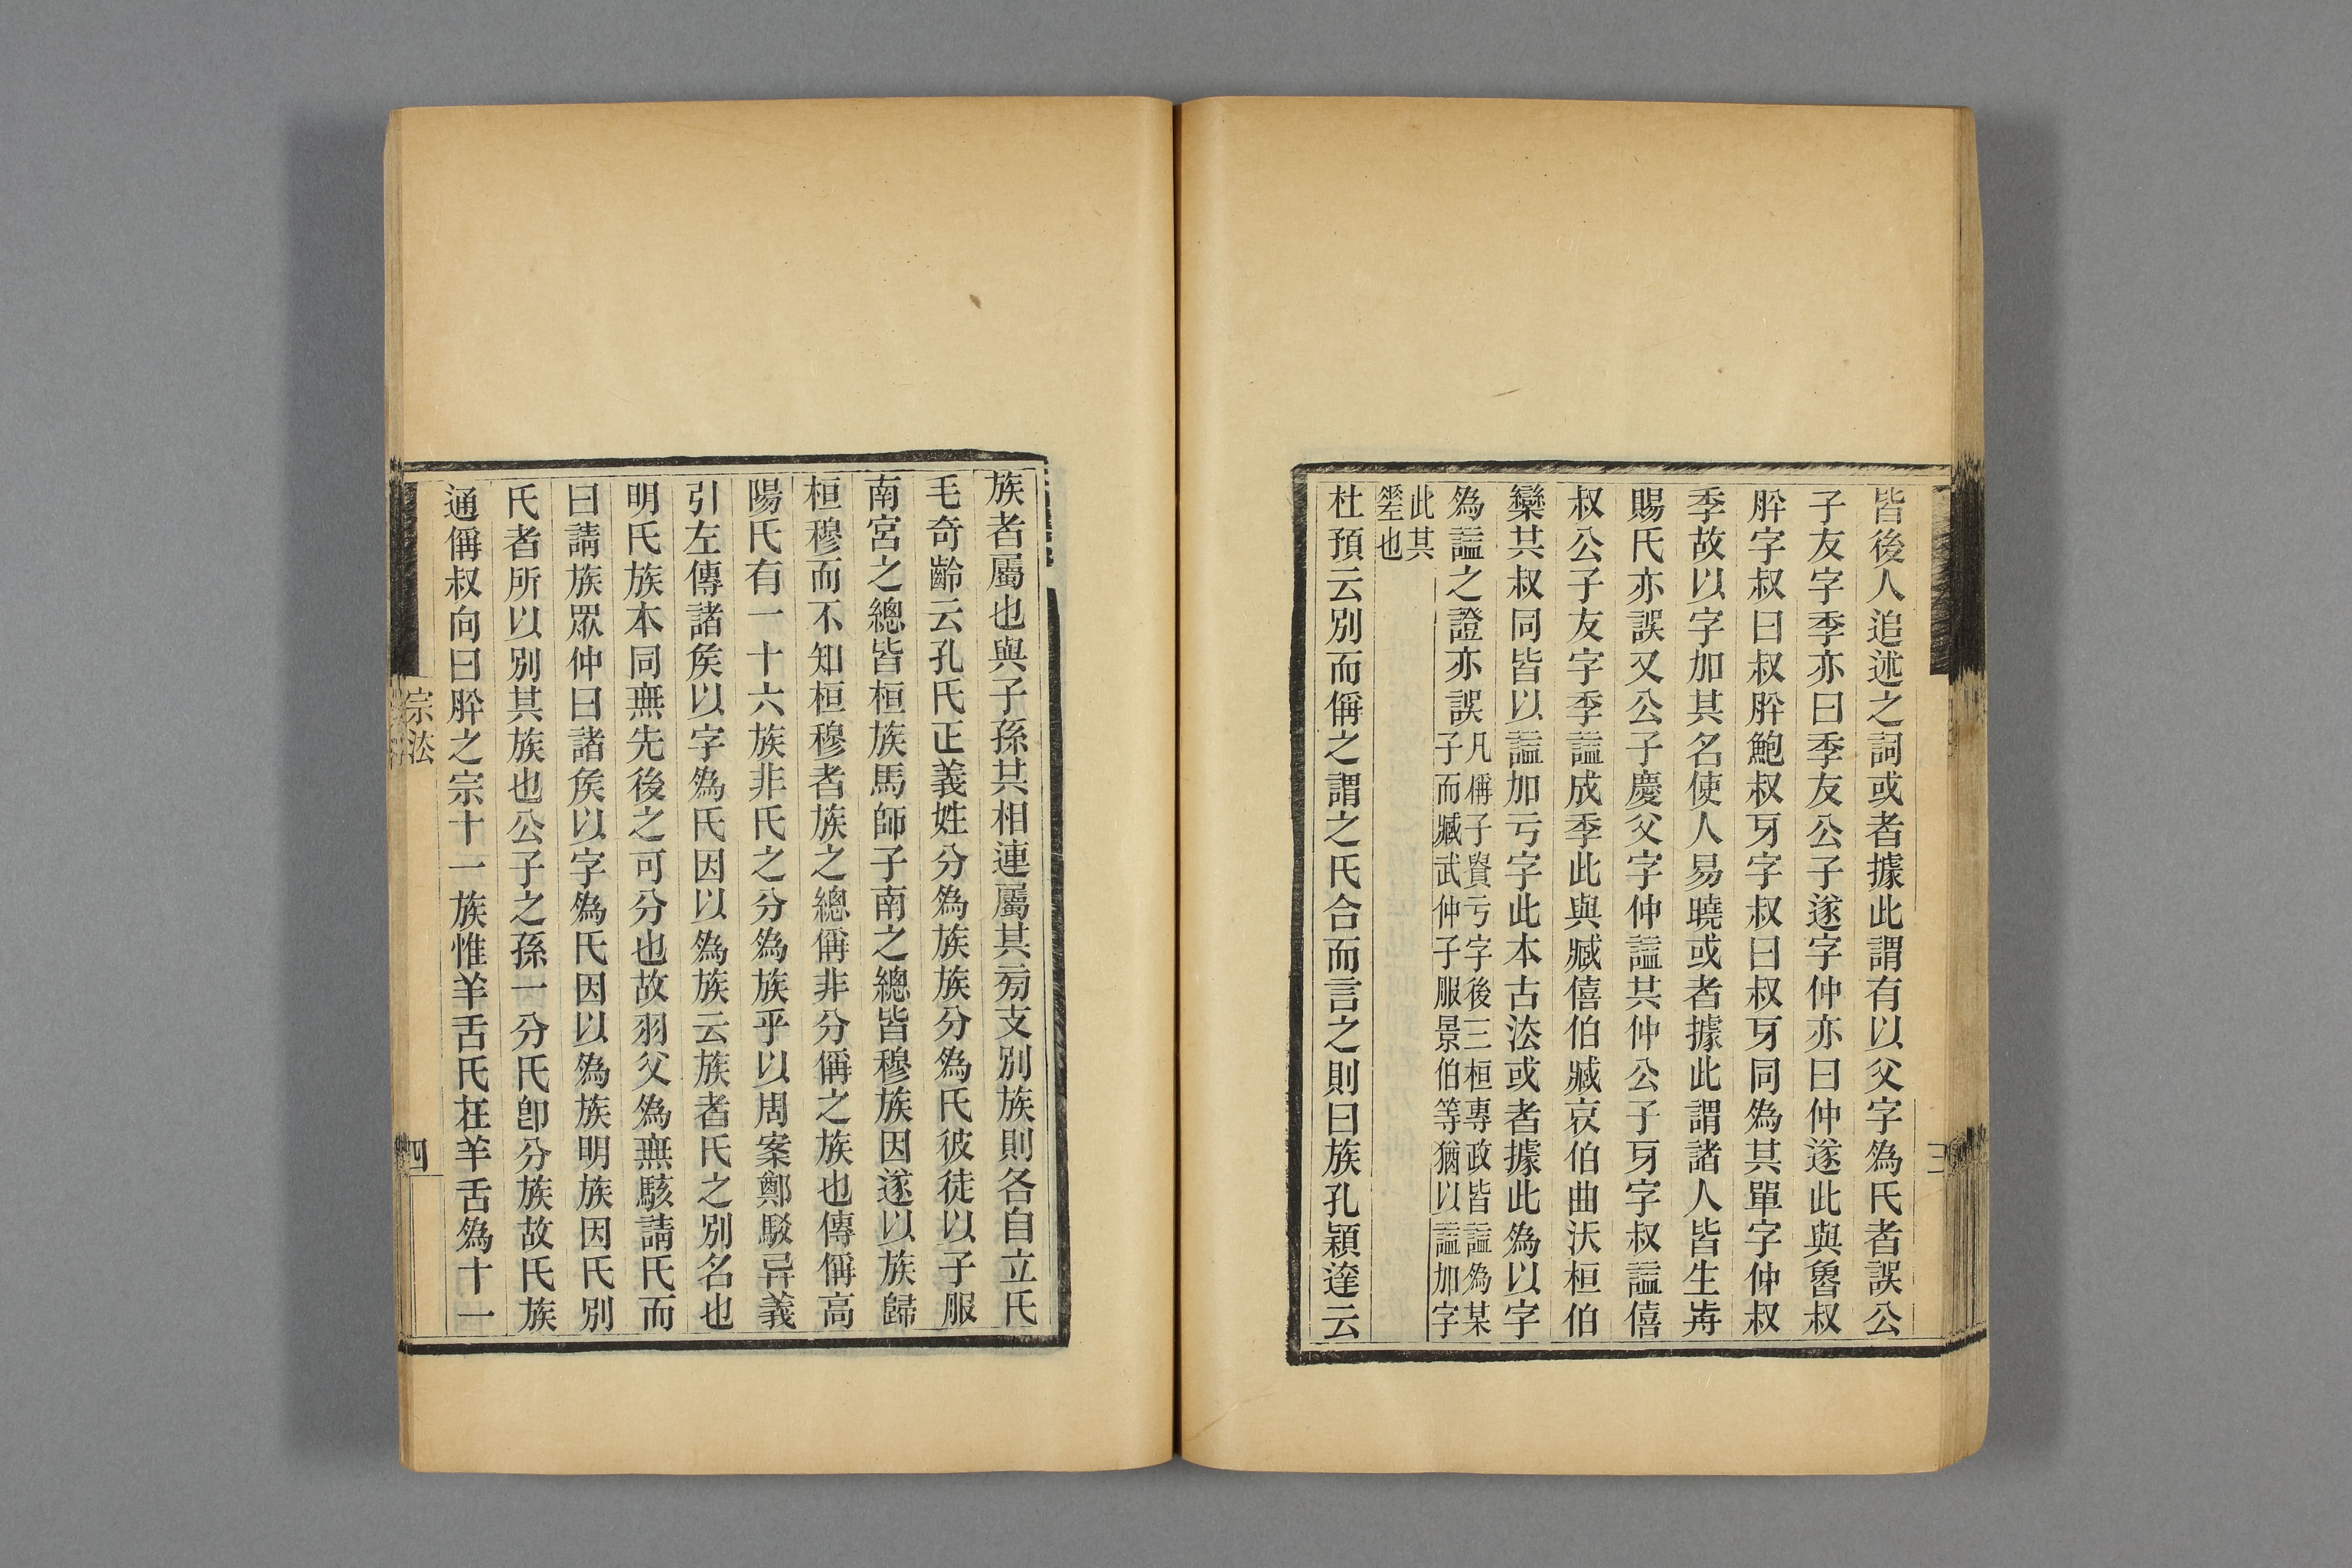 三
皆後人追述之詞或者據此謂有以父字爲氏者誤公
子友字季亦曰季友公子遂字仲亦曰仲遂此與魯叔
肸字叔曰叔肸鮑叔牙字叔曰叔牙同爲其單字仲叔
季故以字加其名使人易曉或者據此謂諸人皆生歬
賜氏亦誤又公子慶父字仲諡共仲公子牙字叔諡僖
叔公子友字季諡成季此與臧僖伯臧哀伯曲沃桓伯
欒共叔同皆以諡加亏字此本古法或者據此爲以字
爲諡之證亦誤凡偁子貲亏字後三桓專政皆諡爲某
子而臧武仲子服景伯等猶以諡加字
此其
差也
杜預云別而偁之謂之氏合而言之則曰族孔穎達云
族者屬也與子孫其相連屬其㫄支別族則各自立氏
毛奇齡云孔氏正義姓分爲族族分爲氏彼徒以子服
南宮之總皆桓族馬師子南之總皆穆族因遂以族歸
桓穆而不知桓穆者族之總偁非分偁之族也傳偁高
陽氏有一十六族非氏之分爲族乎以周案鄭駁异義
引左傳諸矦以字爲氏因以爲族云族者氏之別名也
明氏族本同無先後之可分也故羽父爲無駭請氏而
曰請族眾仲曰諸矦以字爲氏因以爲族明族因氏別
氏者所以別其族也公子之孫一分氏卽分族故氏族
通偁叔向曰肸之宗十一族惟羊舌氏在羊舌爲十一
宗法
四